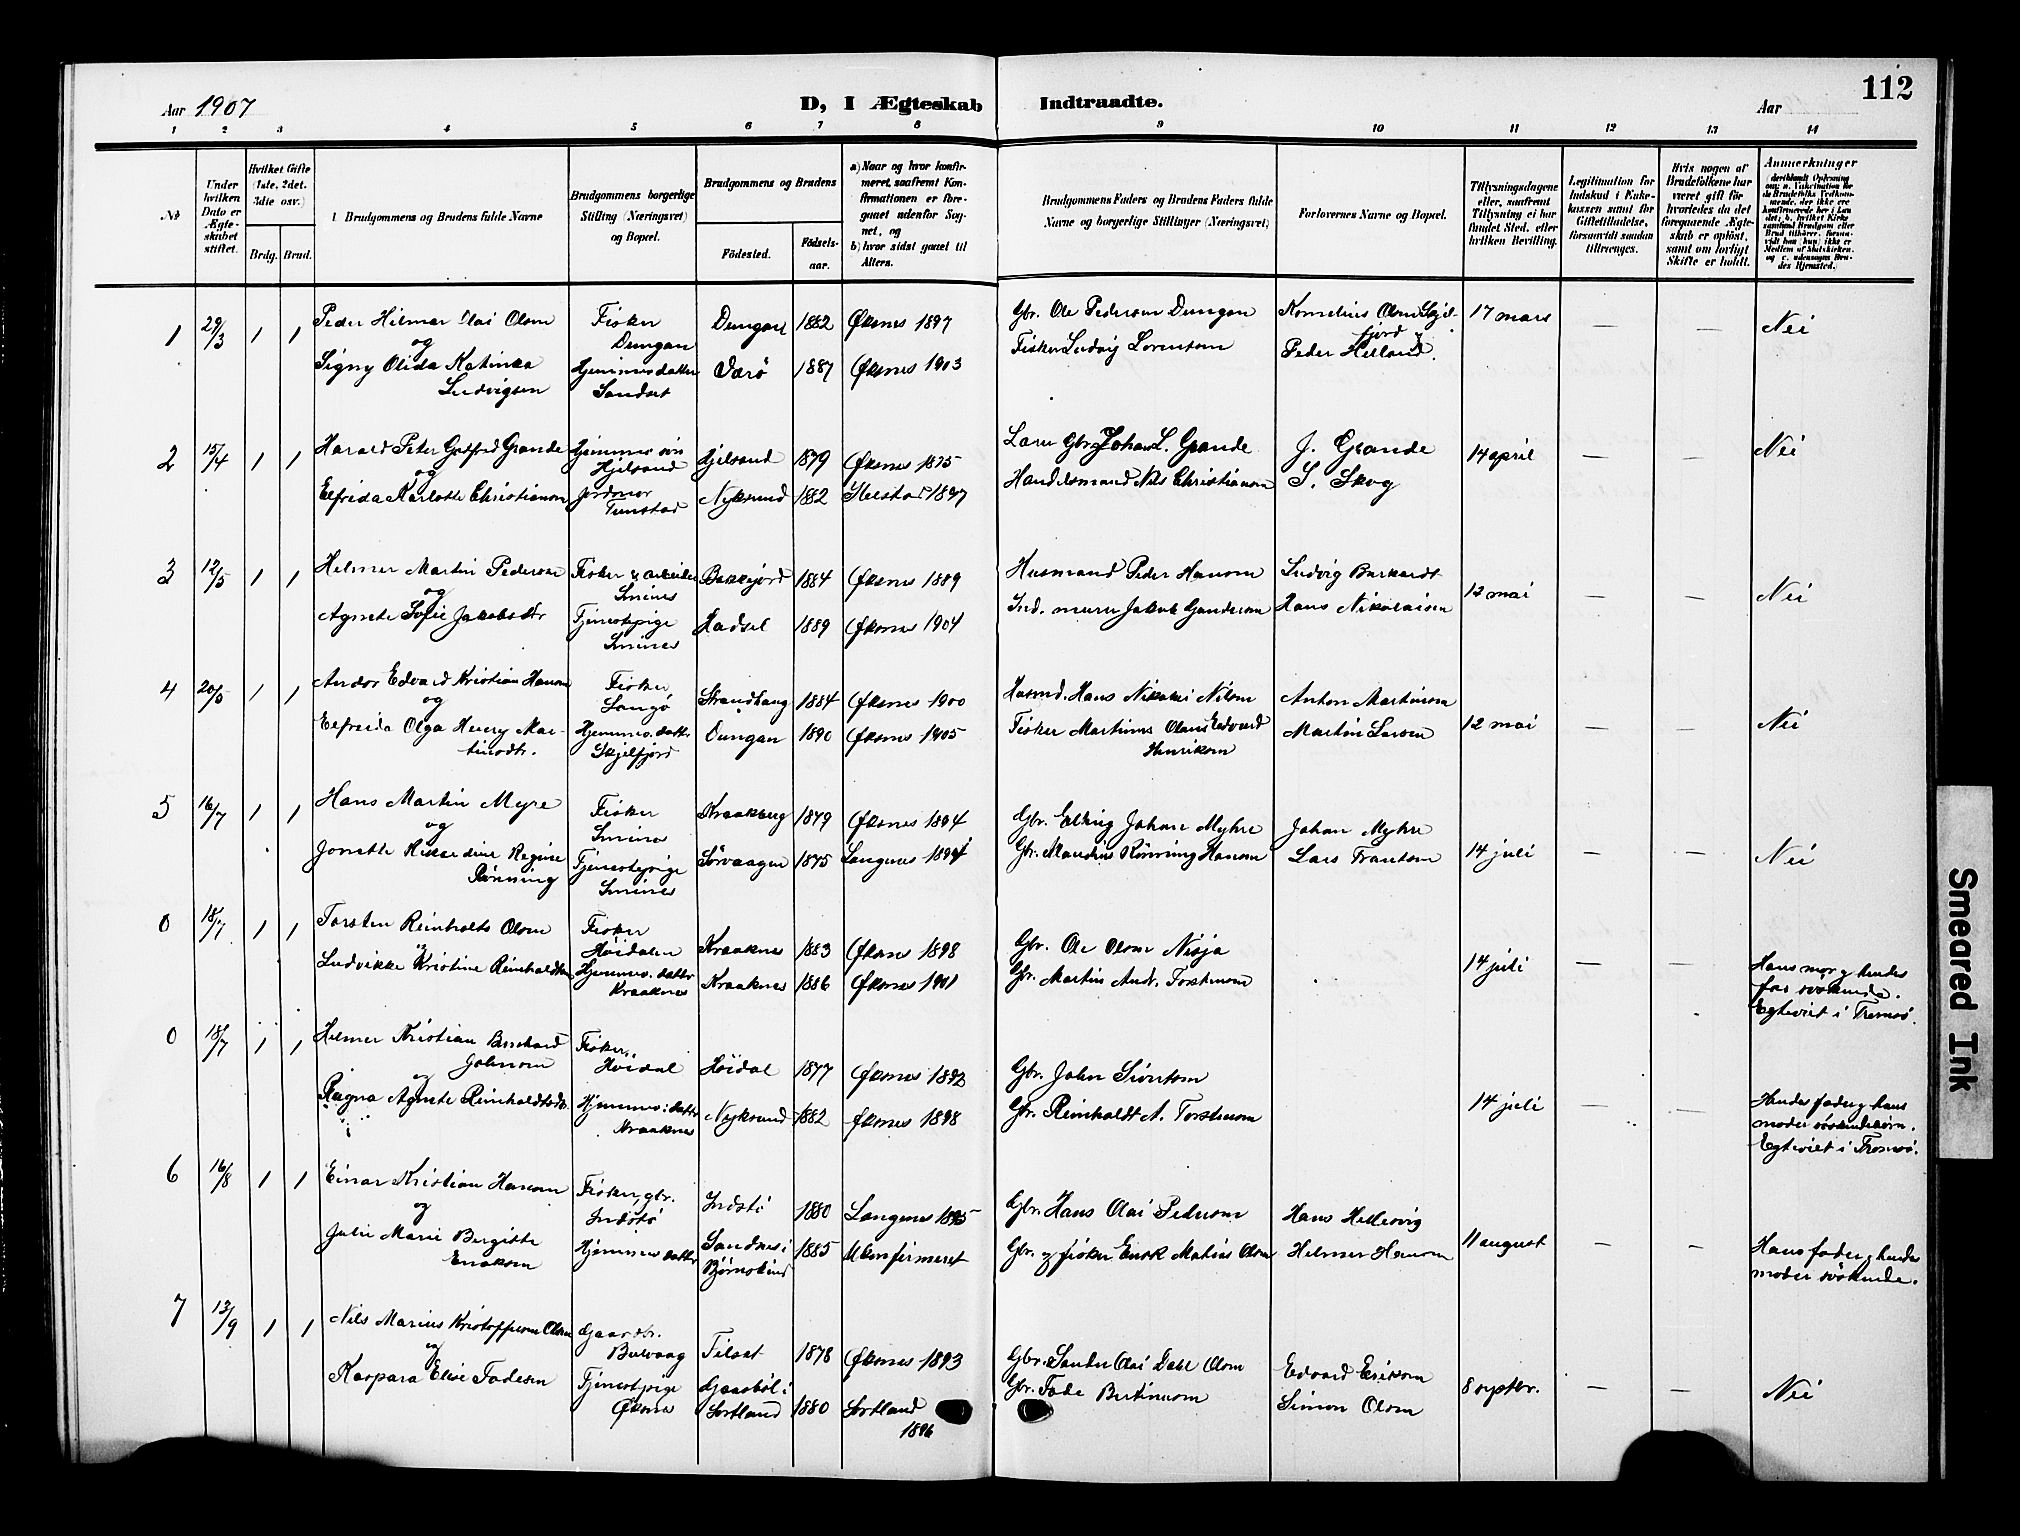 112
Aar 1907
D, I Ægteskab Indtraadte.
Aar
1 2 3 4 5 6 7 8 9 10 11 12 13 14
No
Under hvilken Dato er Ægteskabet stiftet.
Hvilket Gifte (1ste, 2det. 3die osv.)
Brdg. Brud.
1 Brudgommens og Brudens fulde Navne
Brudgommens borgerlige Stilling (Næringsvei) og Bopæl.
Brudgommens og Brudens
Fødested.
Fødselsaar.
a) Naar og hvor konfirmeret, saafremt Konfirmationen er foregaaet udenfor Sognet, og
b) hvor sidst gaaet til Alters.
Brudgommens Faders og Brudens Faders fulde Navne og borgerlige Stillinger (Næringsvei)
Forlovernes Navne og Bopæl.
Tillysningsdagene eller, saafremt Tillysning ei har fundet Sted, efter hvilken Bevilling.
Legitimation for Indskud i Enkekassen samt for Giftetilladelse, forsaavidt saadan tiltrænges.
Hvis nogen af Brudefolkene har været gift før hvorledes da det foregaaende Ægteskab er opløst, samt om lovligt Skifte er holdt.
Anmerkninger
1 29/3 1 1 Peder Hilmar Olai Olsen Fisker Dungan Dungan 1882 Øksnes 1897 Gbr. Ole Pedersen Dungan Kornelius Olsen Skjelfjord 17 mars — — Nei
og
Signy Olida Katinka Ludvigsen Hjemmesdatter Sandset Værø 1887 Øksnes 1903 Fisker Ludvig Lorentsen Peder Helland.
2 15/4 1 1 Harald Peter Godfred Grande Hjemmes. søn Hjelsand Hjelsand 1879 Øksnes 1895 Lærer Gbr. Johan L. Grande J. Grande 14 april — — Nei
og
Elfrida Karlotte Christiansen Jordmor Tunstad Nyksund 1882 1897 Handelsmand Nils Christiansen S. Skog
3 12/5 1 1 Helmer Martin Pedersen Fisker & arbeider Smines Bakkejord 1884 Øksnes 1889 Husmand Peder Hansen Ludvig Burkardt 12 mai — — Nei
og
Agnete Sofie Jakobsdtr Tjenestepige Smines Hadsel 1889 Øksnes 1904 Ind. murer Jakob Gundersen Hans Nikolaisen
4 20/5 1 1 Andor Edvard Kristian Hansen Fisker Langø Strandhaug 1884 Øksnes 1900 Husmd. Hans Nikolai Nilsen Anton Martinsen 12 mai — — Nei
og
Elfrida Olga Henry Martinsdtr. Hjemmes. datter Skjelfjord Dungan 1890 Øksnes 1905 Fisker Martinus Olaus Edvard Henriksen Martin Larsen
5 16/7 1 1 Hans Martin Myre Fisker Smines Kraakberg 1879 Øksnes 1894 Gbr. Elling Johan Myhre Johan Myhre 14 juli — — Nei
og
Jonette Rikardine Regine Rønning Tjenestepige Smines Sørvaagen 1875 Langenes 1894 Gbr. Mandius Rønning Hansen Lars Frantsen
0 18/7 1 1 Torsten Reinholts Olsen Fisker Høidalen Kraaknes 1883 Øksnes 1898 Gbr. Ole Olsen Nisja 14 juli — — Hans mor og hendes far søskende. Egteviet i Tromsø.
og
Ludvikke Kristine Reinholdtsen Hjemmes. datter Kraaknes Kraaknes 1886 Øksnes 1901 Gbr. Martin And. Torstensen
0 18/7 1 1 Helmer Kristian Bernhard Johnsen Fisker, Høidal Høidal 1877 Øksnes 1892 Gbr. John Sivertsen 14 juli — — Hendes fader og hans moder søskendebørn. Egteviet i Tromsø.
og
Ragna Agnete Reinholdtsdtr. Hjemmes. datter Kraaknes Nyksund 1882 Øksnes 1898 Gbr. Reinholdt A. Torstensen
6 16/8 1 1 Einar Kristian Hansen Fisker, gbr. Indstø Indstø 1880 Langenes 1895 Gbr. Hans Olai Pedersen Hans Hellesvig 11 august — — Hans fader og hendes moder søskende.
og
Julie Marie Bergitte Eriksen Hjemmes datter Sandnes i Bjørnskind 1885 Ukonfirmeret Gbr. og fisker Enok Matias Olsen Helmer Hansen
7 13/9 1 1 Nils Marius Kristoffersen Olsen Gaardbr. Bulvaag Tilset 1878 Øksnes 1893 Gbr. Sander Olai Dahl Olsen Edvard Eriksen 8 septbr. — — Nei
og
Kaspara Elise Todesen Tjenestepige Øksnes Gaasbøl i Sortland 1880 Sortland 1896 Gbr. Tode Bertinusen Simon Olsen
Smeared Ink